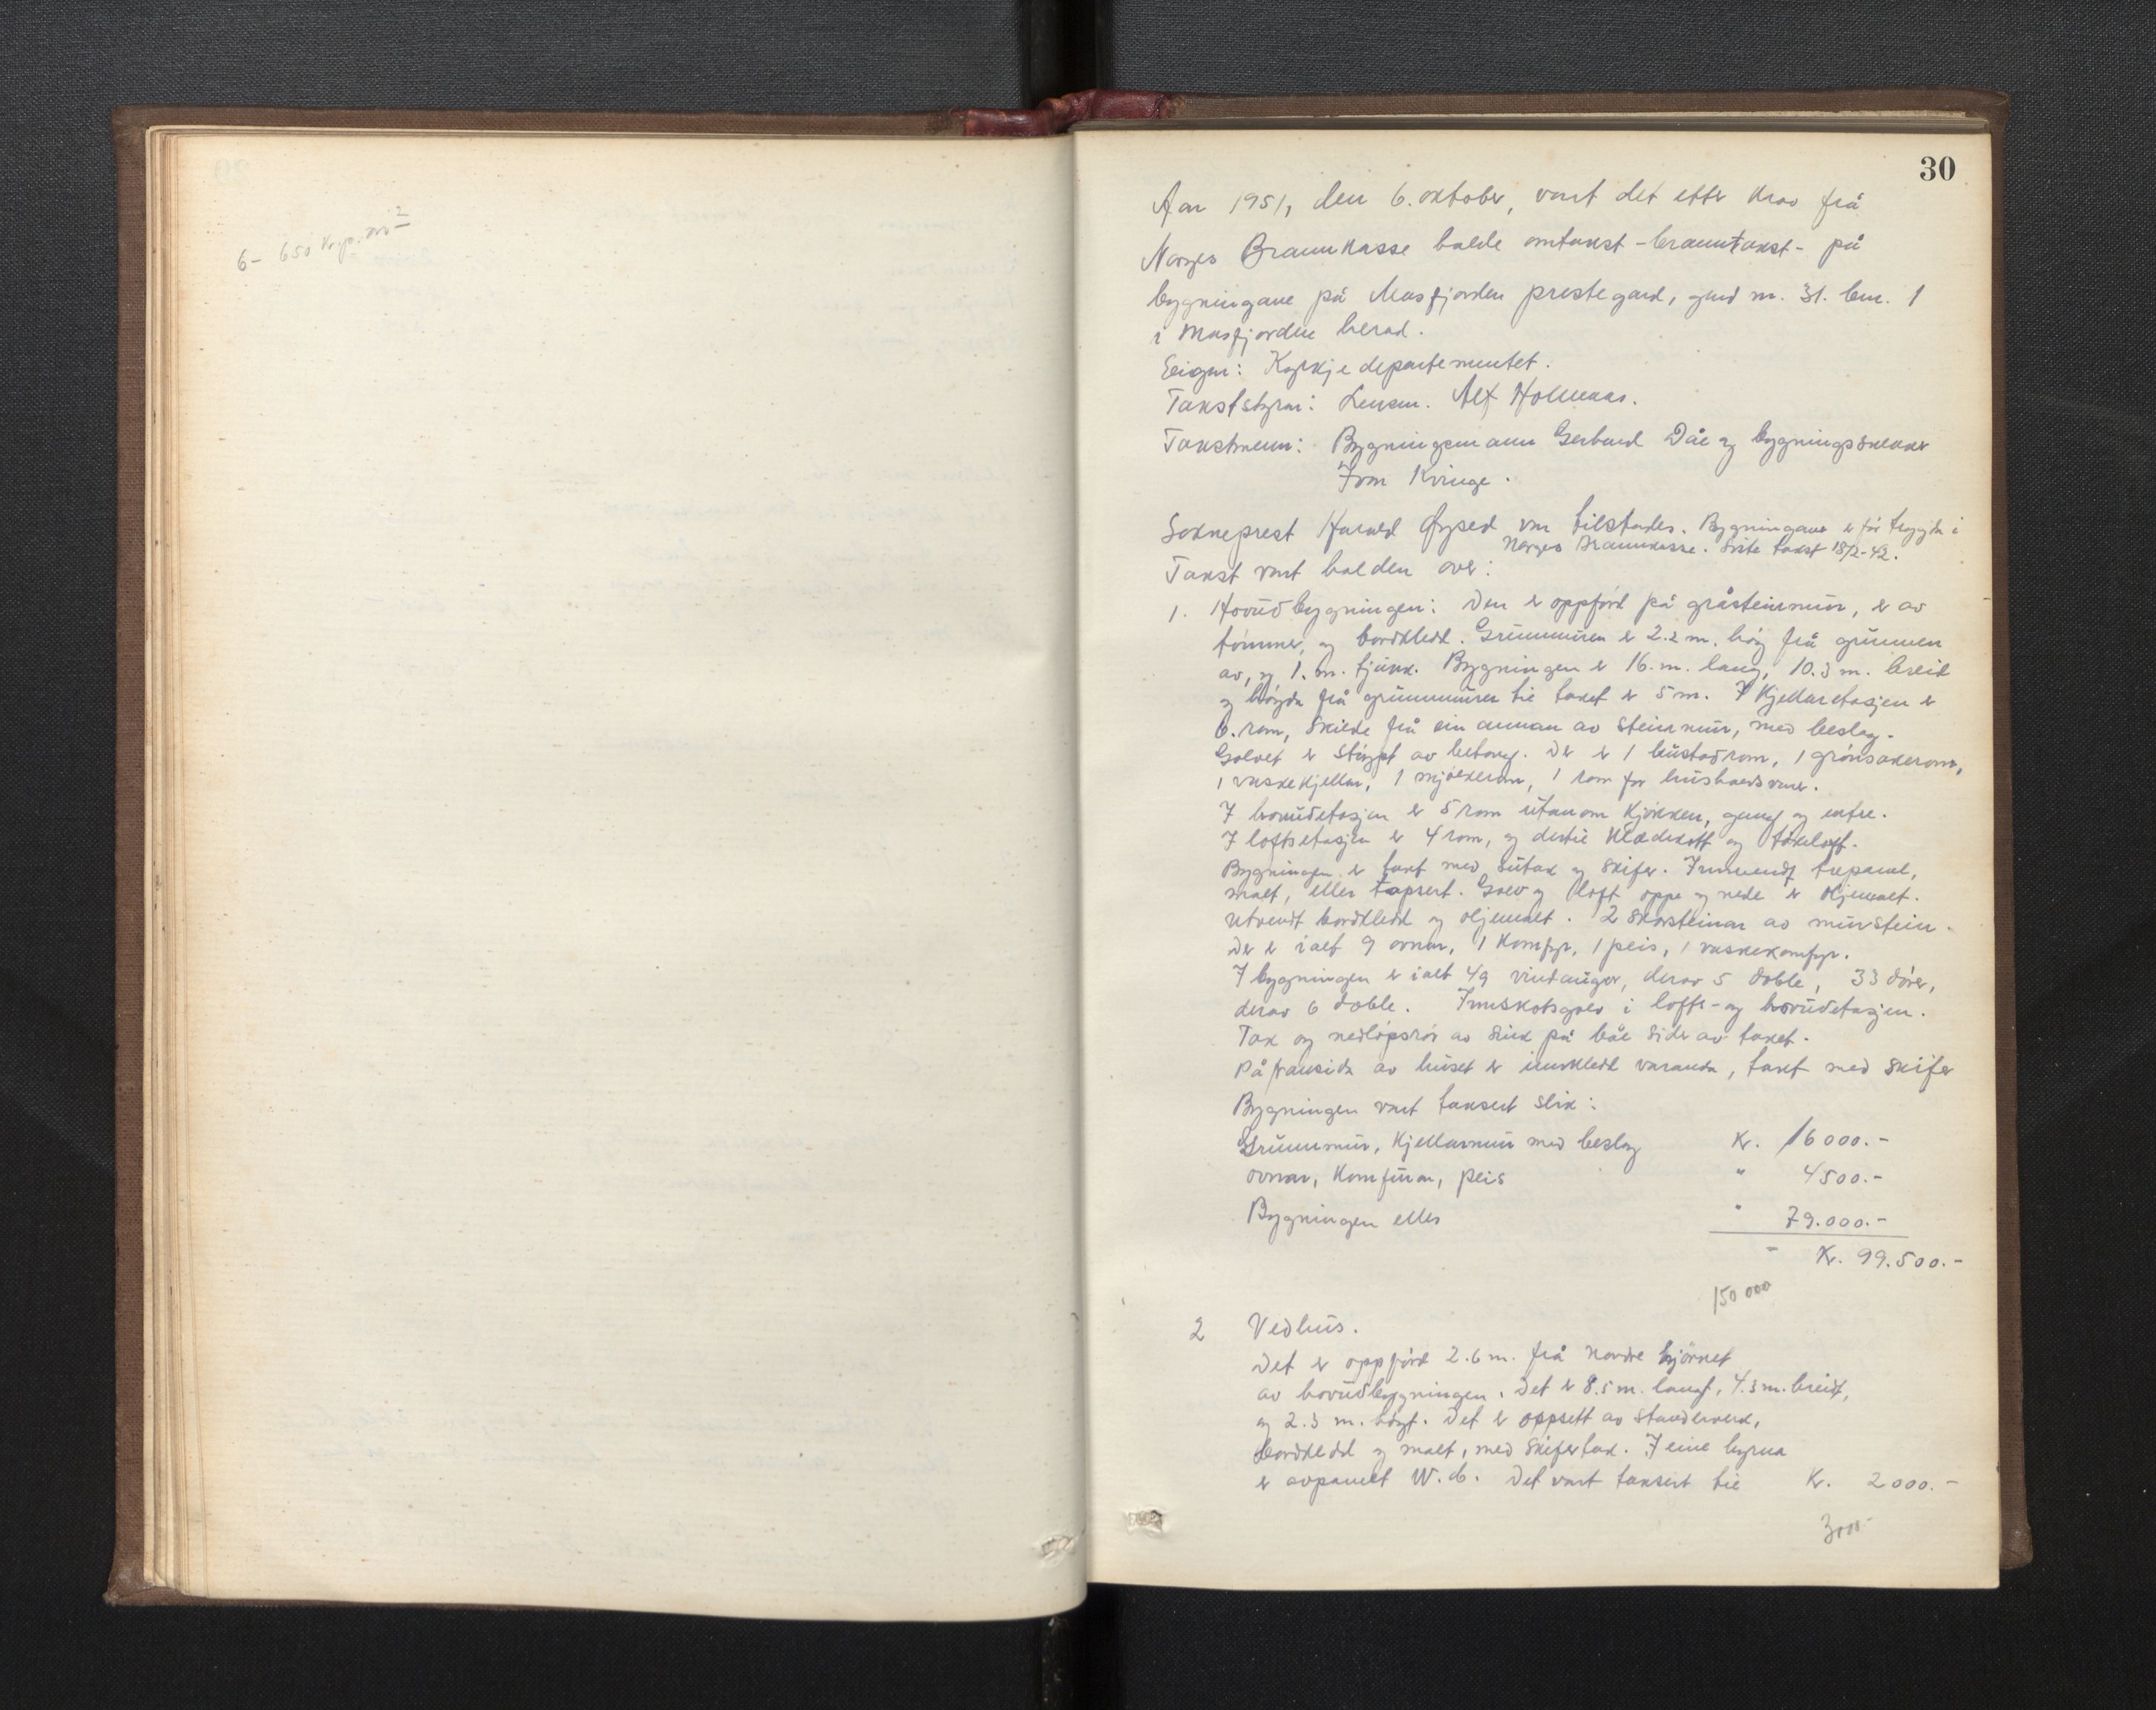 6 - 650 kr. pr. m²
30
Aar 1951, den 6. oktober, vart det etter krav frå
Norges Brannkasse halde omtakst - branntakst - på
bygningane på Masfjorden prestegard, gard nr. 31. bnr. 1
i Masfjorden herad.
Eigar: Kyrkjedepartementet.
Takststyrar: Lensm. Alf Hollekas.
Takstmenn: Bygningsmann Gerhard Dåe og bygningssnekker
Ivar Kvinge.
Sokneprest Harald Øysed var tilstades. Bygningane er før trygda i
Norges Brannkasse. Siste takst 18/2-42.
Takst vart halden over:
1. Hovudbygningen: Den er oppförd på gråsteinsmur, er av
tömmer, og bordkledd. Grunnmuren er 2.2 m. hög frå grunnen
av, og 1. m. tjukk. Bygningen er 16. m. lang, 10.3 m. breid
og högda frå grunnmuren til taket er 5 m. I kjellaretasjen er
6. rom, skilde frå ein annan av steinmur, med beslag.
Golvet er stöypt av betong. Der er 1 bustadrom, 1 grönsakerom,
1 vaskekjellar, 1 mjölkerom, 1 rom for hushaldsvarer.
I hovudetasjen er 5 rom utanom kjökken, gang og entre.
I loftsetasjen er 4 rom, og dertil klædekott og
Bygningen er takt med sutak og skifer. Innvendt trepanel,
malt, eller tapsert. Golv og loft oppe og nede er oljemalt.
Utvendt bordkledd og oljemalt. 2 skorsteinar av murstein.
Der er ialt 9 ovnar, 1 komfyr, 1 peis, 1 vaskekomfyr.
I bygningen er ialt 49 vindauger, derav 5 doble, 33 dörer,
derav 6 doble. Innskotsgolv i lofts- og hovudetasjen.
Tak og nedlöpsrör av sink på båe sider av taket.
På framsida av huset er innkledd varanda, takt med skifer
Bygningen vart taksert slik:
Grunnmur, kjellarmur med beslag Kr. 16000.-
ovnar, komfurar, peis " 4500.-
Bygningen elles " 79.000.-
- Kr. 99.500.-
150 000
2 Vedhus.
Det er oppförd 2.6 m. frå nordre hjörnet
av hovudbygningen. Det er 8.5 m. langt, 4.3 m. breidt,
og 2.3 m. högt. Det er oppsett av standerverk,
bordkledd og malt, med skifertak. I eine hyrna
er avpanelt W.c. Det vart taksert til Kr. 2000.-
3000-